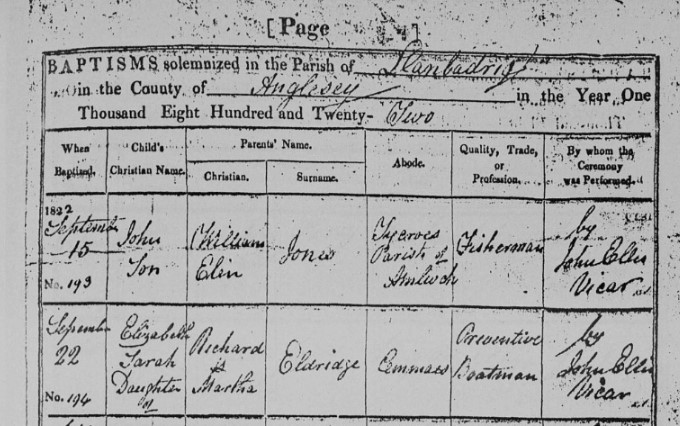 [ Page
BAPTISMS solemnized in the Parish of Llanbadrig
in the County of Anglesey in the Year One
Thousand Eight Hundred and Twenty- Two
When Baptized.
Child's Christian Name.
Parents' Name.
Christian.
Surname.
Abode.
Quality, Trade, or Profession.
By whom the Ceremony was Performed.
1822
Septembr
15
No. 193
John
Son
William
Elin
Jones
Parish of
Amlwch
Fisherman
by
John Ellis
Vicar
September
22
No. 194
Elizabeth
Sarah
Daughter
of
Richard
&
Martha
Eldridge
Cemmaes
Preventive
Boatman
by
John Ellis
Vicar